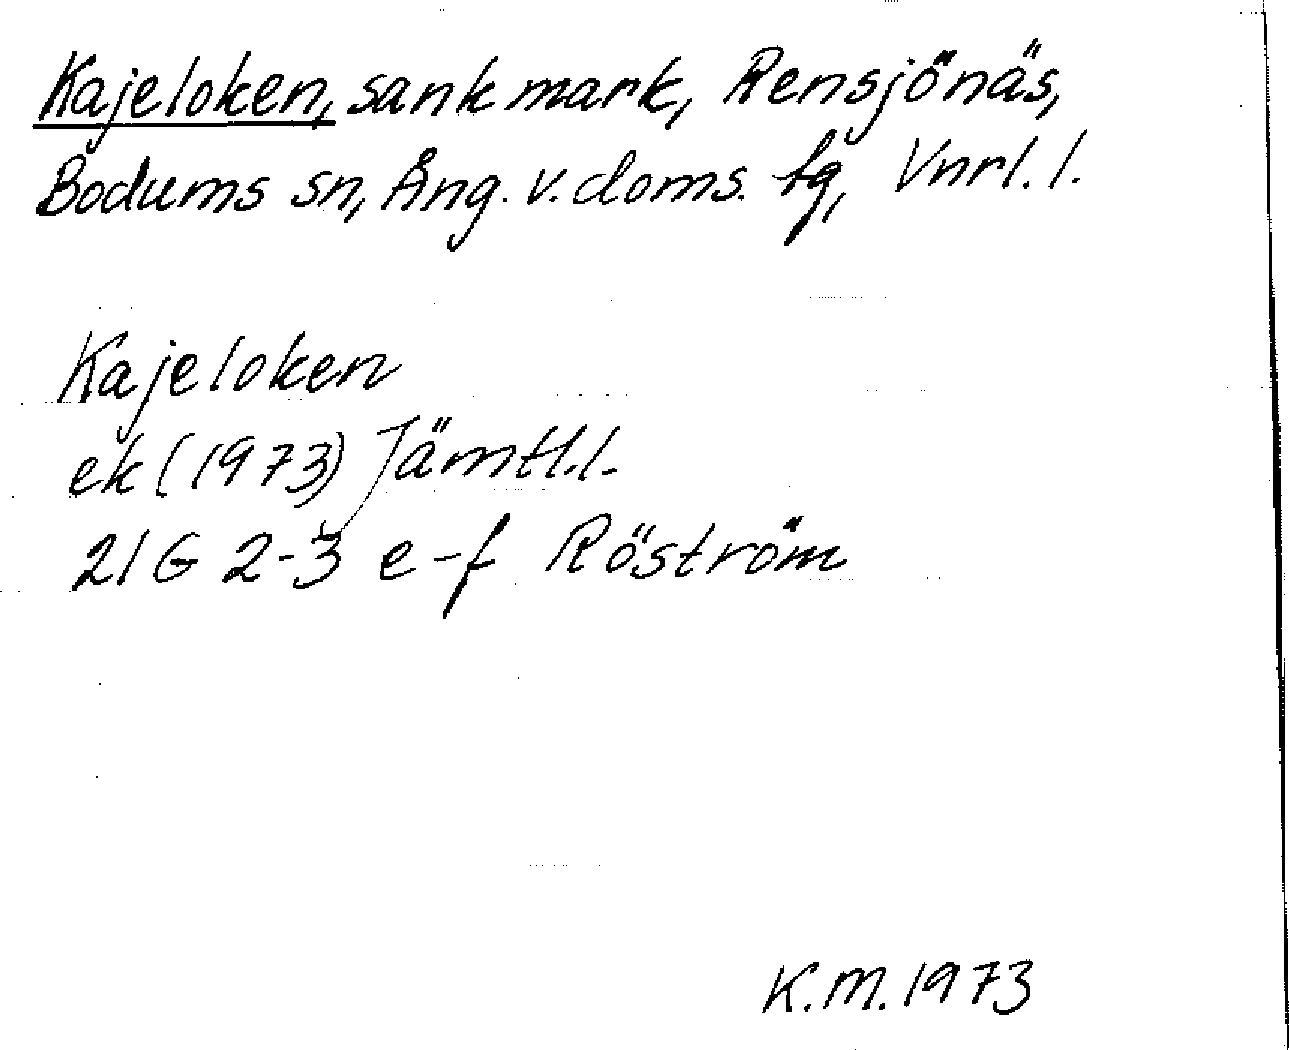 Kajeloken, sank mark, Rensjönäs,
Bodums sn, Ång. v. doms. fg, Vnrl. l.
Kajeloken
ek (1973) Jämtl. l.
21G 2-3 e-f Röström
K.M. 1973